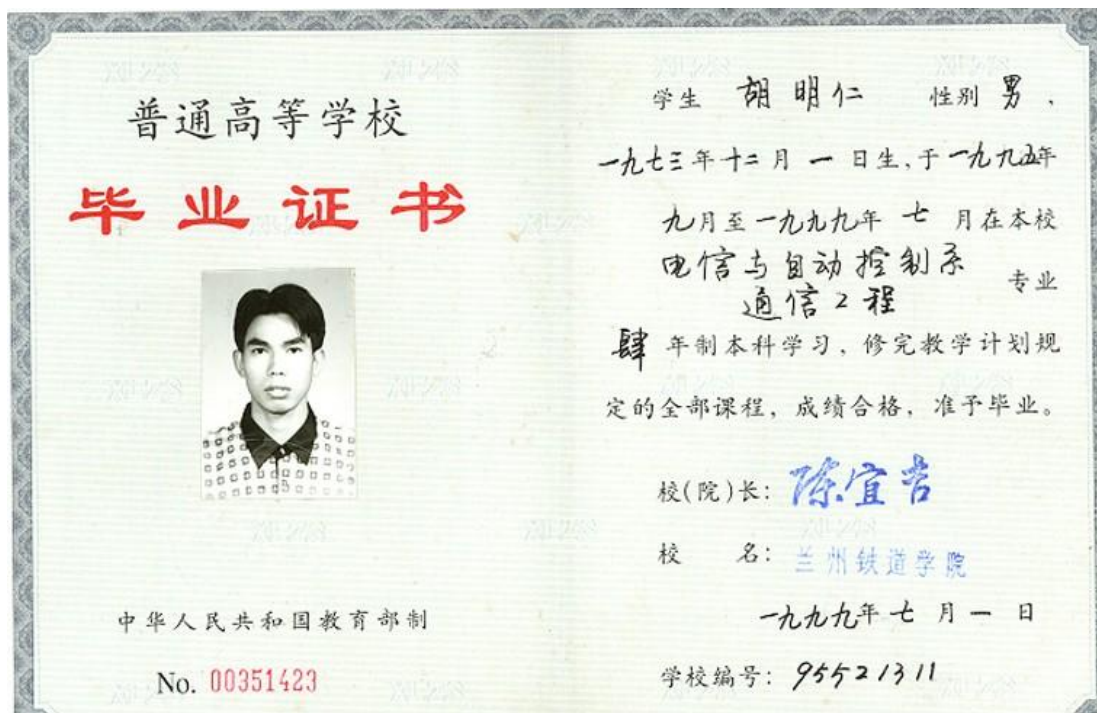 普通高等学校
毕业证书
中华人民共和国教育部制
No. 00351423
学生 胡明仁 性别 男，
一九七三年十二月一日生，于一九九五年
九月至一九九九年 七 月在本校
电信与自动控制系
通信工程 专业
肆 年制本科学习，修完教学计划规
定的全部课程，成绩合格，准予毕业。
校(院)长：陈宜吉
校 名：兰州铁道学院
一九九九年七月一日
学校编号：95521311